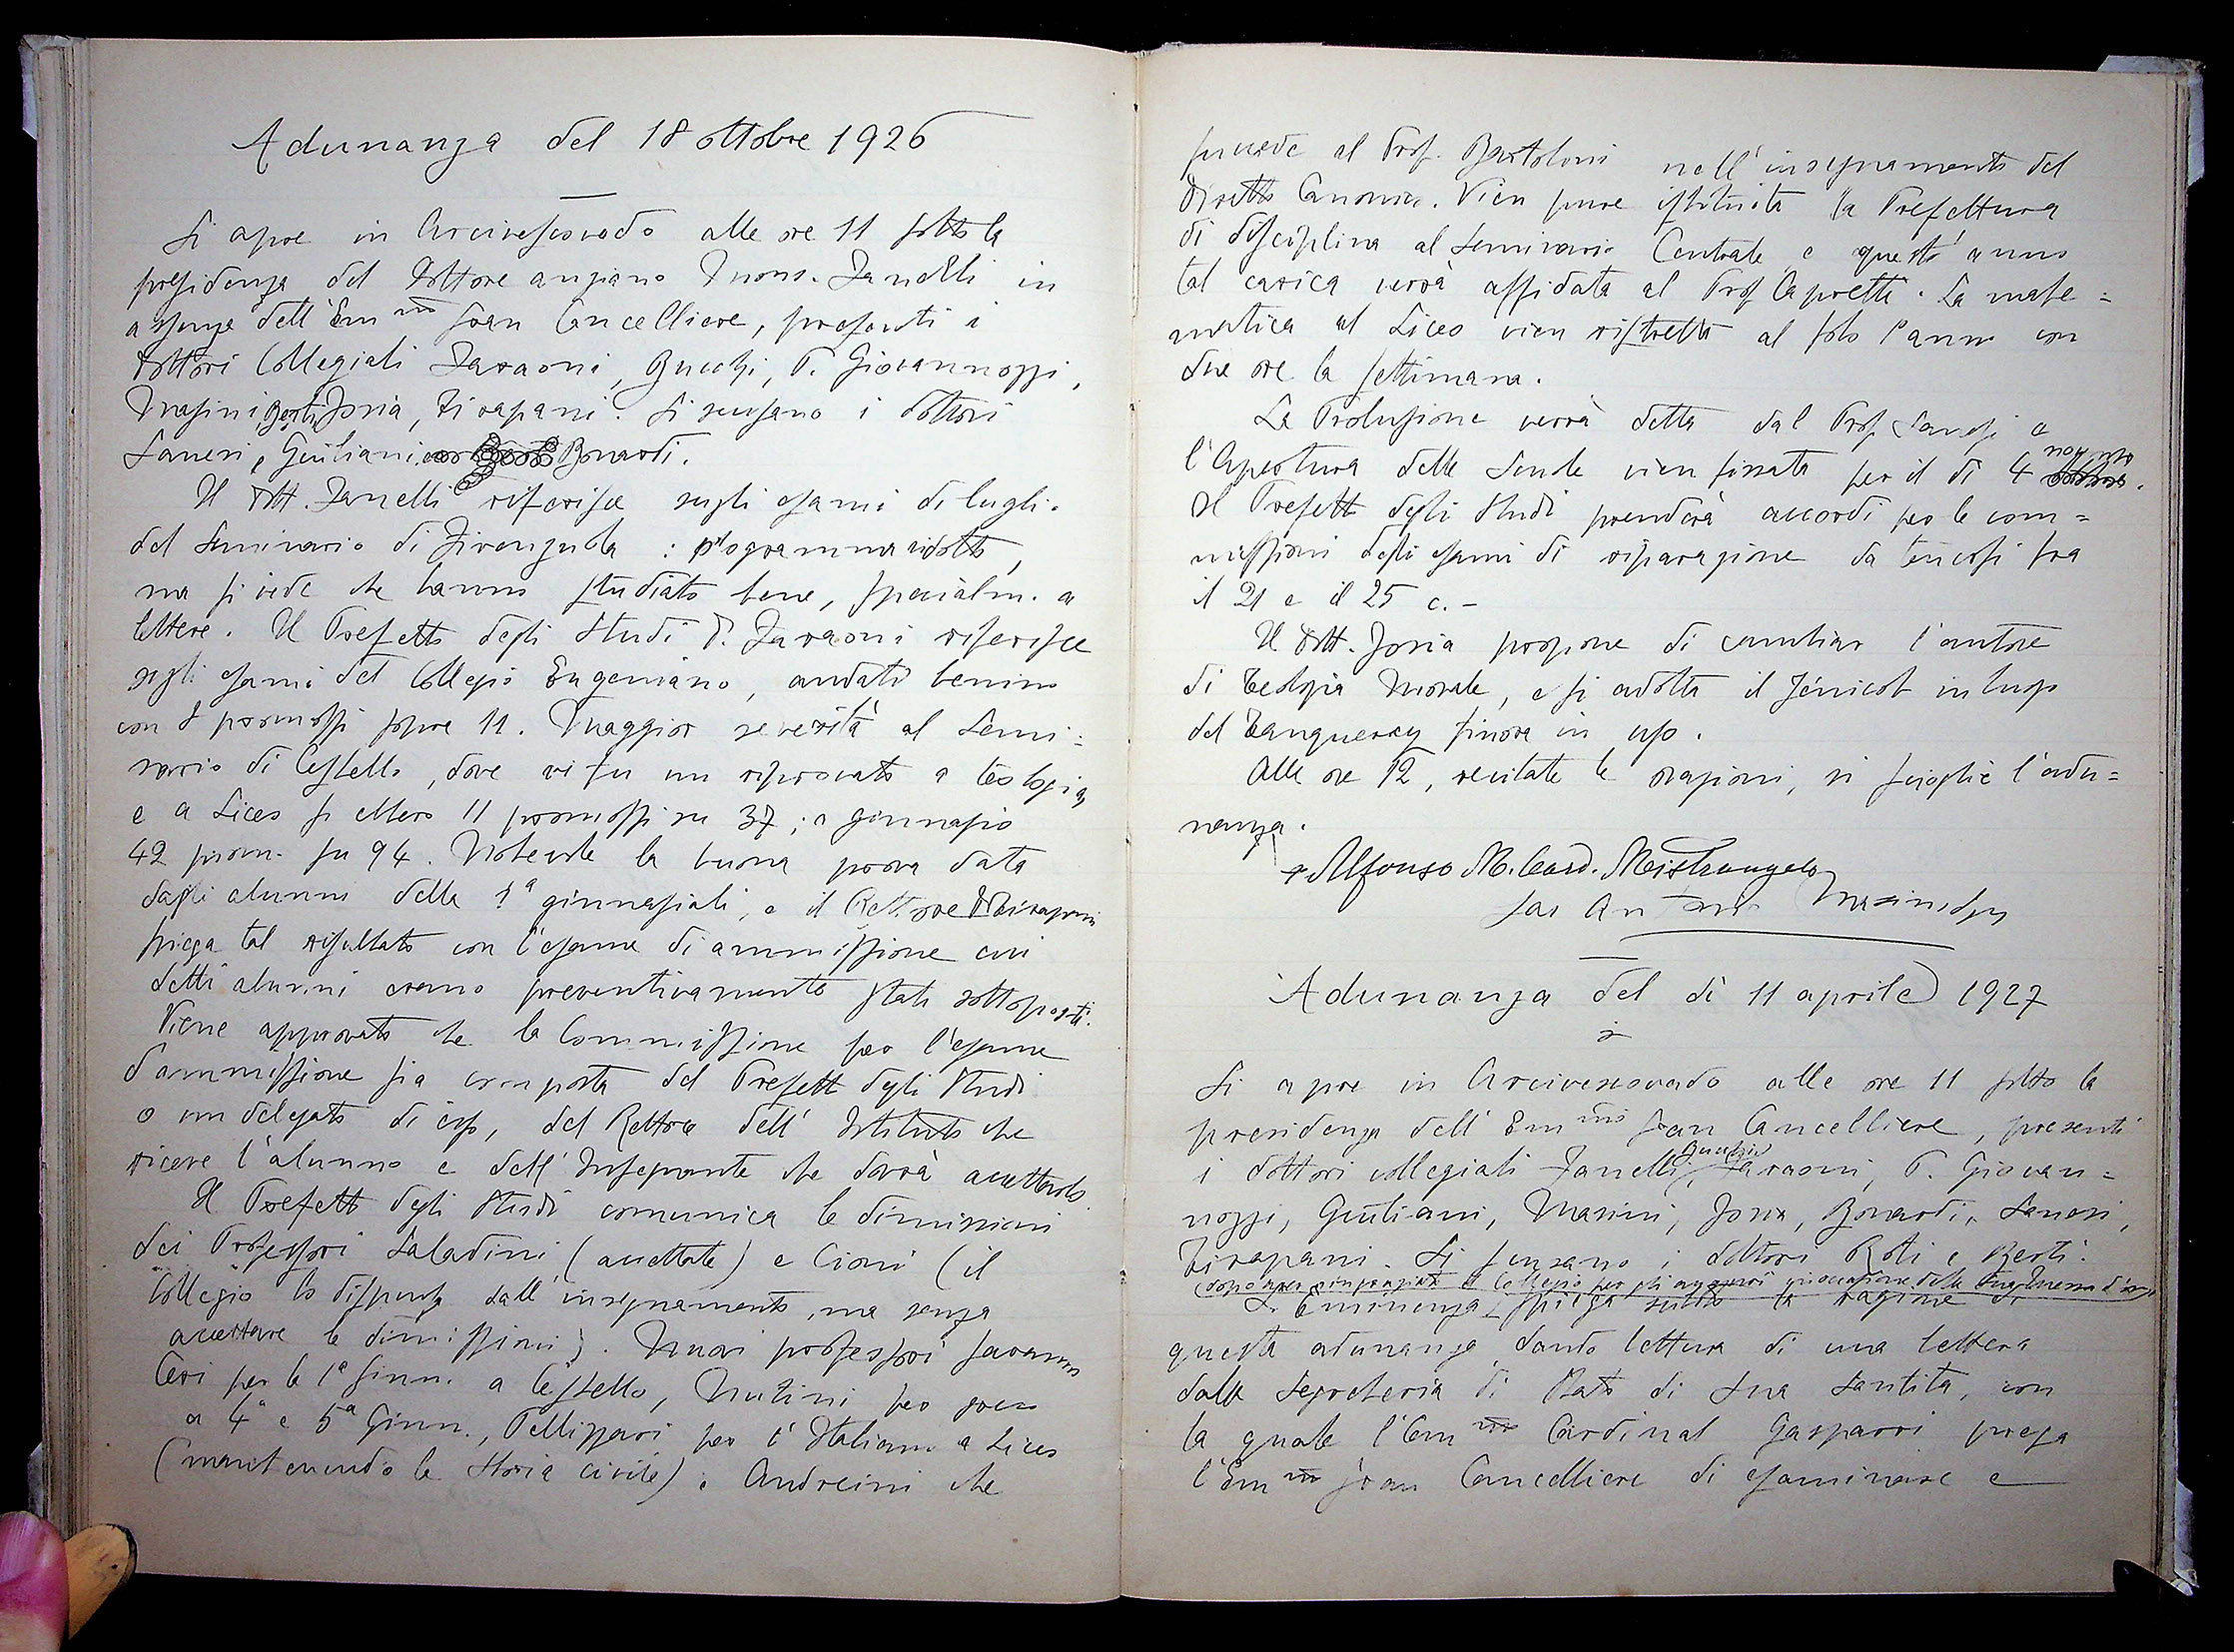 Adunanza del 18 ottobre 1926
Si apre in Arcivescovado alle ore 11 sotto la
presidenza del Dottore anziano Mons. Zanelli in
assenza dell'Emmo Gran Cancelliere, presenti i
dottori Collegiali Faraoni, Gucchi, P. Giovannozzi,
Masini, Berti, Joria, Tirapani. Si scusano i dottori
Sanesi, Giuliani, Bonardi.
Il Dott. Zanelli riferisce sugli esami di luglio
del Seminario di Firenzuola: programma ridotto,
ma si vede che hanno studiato bene, specialm. a
lettere. Il Prefetto degli Studi P. Faraoni riferisce
sugli esami del Collegio Eugeniano, andati benino
con 8 promossi sopra 11. Maggior severità al Semi=
nario di Cestello, dove vi fu un riprovato a teologia,
e a Liceo si ebbero 11 promossi su 37; a ginnasio
42 prom. su 94. Notevole la buona prova data
dagli alunni della 1ª ginnasiali, e il Rettore Tirapani
spiega tal risultato con l'esame di ammissione cui
detti alunni erano preventivamente stati sottoposti.
Viene approvato che la Commissione per l'esame
d'ammissione sia composta del Prefetto degli Studi
o un delegato di esso, del Rettore dell'Istituto che
riceve l'alunno e dell'Insegnante che dovrà accettarlo.
Il Prefetto degli Studi comunica le dimissioni
dei Professori Saladini (accettate) e Cioni (il
Collegio lo dispensa dall'insegnamento, ma senza
accettare le dimissioni). Nuovi professori saranno
Ceri per la 1ª Ginn. a Cestello, Nutini per greco
a 4ª e 5ª Ginn., Pellizzari per l'Italiano a Liceo
(mantenendo la Storia civile); Andreini che
succede al Prof. Bartoloni nell'insegnamento del
Diritto Canonico. Vien pure istituita la Prefettura
di disciplina al Seminario Centrale e quest'anno
tal carica verrà affidata al Prof. Capretti. La mate=
matica al Liceo vien ristretta al solo 1º anno con
due ore la settimana.
La Prolusione verrà detta dal Prof. Sanesi e
l'Apertura delle Scuole vien fissata per il dì 4 novembre.
Il Prefetto degli Studi prenderà accordi per le com=
missioni degli esami di riparazione da tenersi fra
il 21 e il 25 c. -
Il Dott. Joria propone di cambiar l'autore
di Teologia Morale, e si adotta il Génicot in luogo
del Tanquerey finora in uso.
Alle ore 12, recitate le orazioni, si scioglie l'adu=
nanza.
+ Alfonso M. Card. Mistrangelo
Sac. Antonio Masini
Adunanza del dì 11 aprile 1927
Si apre in Arcivescovado alle ore 11 sotto la
presidenza dell'Emmo Gran Cancelliere, presenti
i dottori collegiali Zanelli, Gucchi, Faraoni, P. Giovan=
nozzi, Giuliani, Masini, Joria, Bonardi, Sanesi,
Tirapani. Si scusano i dottori Roti e Berti.
(dopo aver ringraziato il Collegio per gli auguri in occasione della Sua Messa d'oro)
S. Eminenza spiega subito la ragione di
questa adunanza dando lettura di una lettera
dalla Segreteria di Stato di Sua Santità, con
la quale l'Emmo Cardinal Gasparri prega
l'Emmo Gran Cancelliere di esaminare e